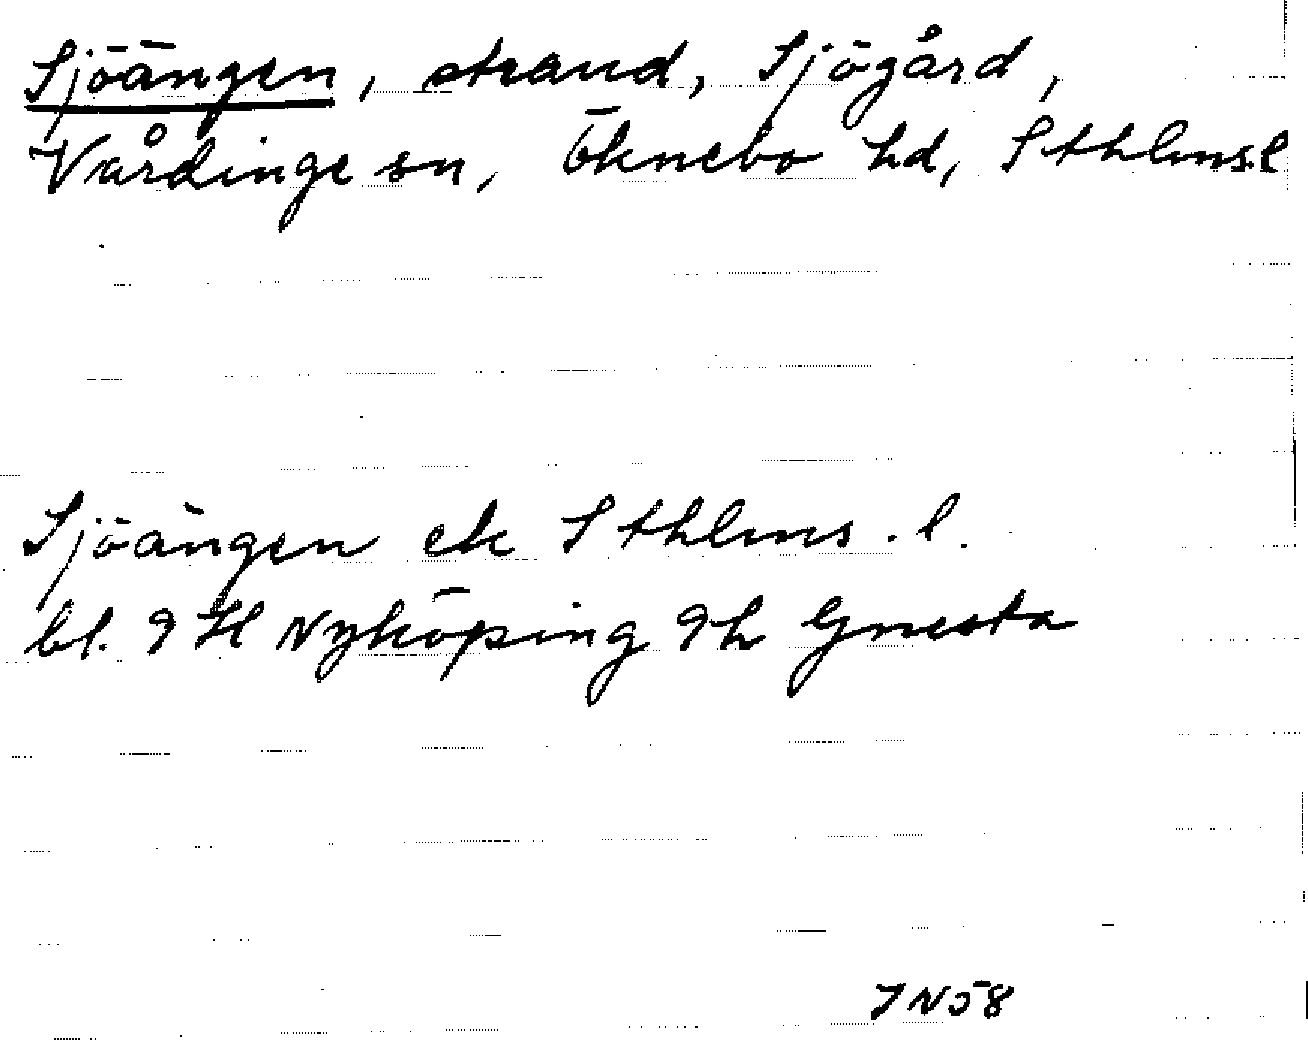 Sjöängen, strand, Sjögård,
Vårdinge sn, Öknebo hd, Sthlms.l
Sjöängen ek Sthlms. l.
bl. 9 H Nyköping 9h Gnesta
JN58